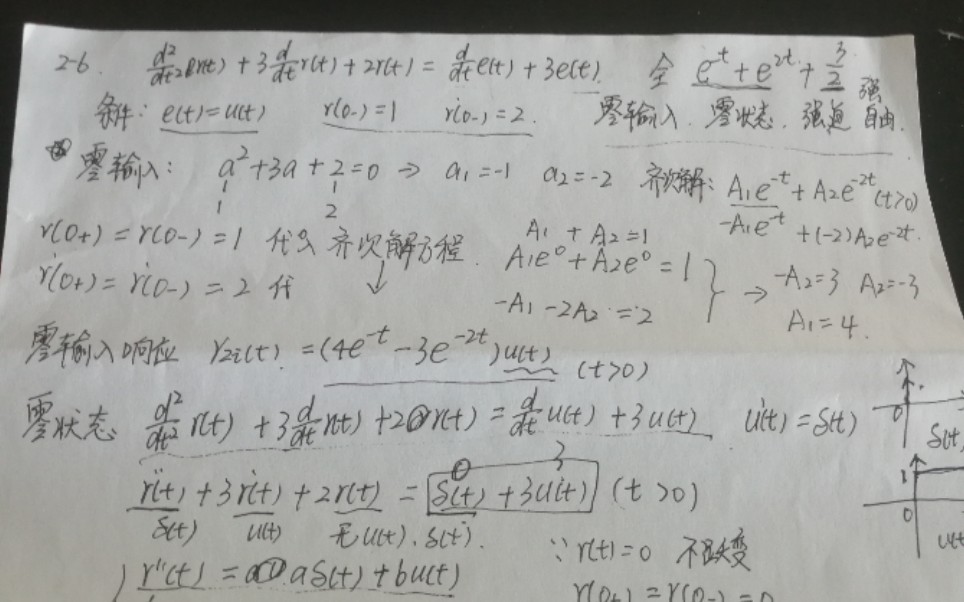 2-6. d²/dt² r(t) + 3 d/dt r(t) + 2r(t) = d/dt e(t) + 3e(t) 全 e^t + e^2t + 3/2 强
条件: e(t)=u(t) r(0-)=1 ṙ(0-)=2. 零输入. 零状态. 强迫 自由.
零输入: a²+3a+2=0 → a₁=-1 a₂=-2 齐次解: A₁e^-t + A₂e^-2t (t>0)
1 2 -A₁e^-t + (-2)A₂e^-2t.
r(0+) = r(0-) = 1 代入 齐次解方程. A₁ + A₂=1
A₁e⁰+A₂e⁰=1
ṙ(0+) = ṙ(0-) = 2 代 ↓ -A₁-2A₂=2 } → -A₂=3 A₂=-3
A₁=4.
零输入响应 rzi(t) = (4e^-t - 3e^-2t)u(t) (t>0)
零状态 d²/dt² r(t) + 3 d/dt r(t) + 2r(t) = d/dt u(t) + 3u(t) u̇(t)=δ(t)
0 δ(t)
r̈(t) + 3ṙ(t) + 2r(t) = δ(t) + 3u(t) (t>0)
δ(t) u(t) 无u(t). δ(t).
1 0 u(t)
r''(t) = aδ(t)+bu(t) ∵ r(t)=0 不跃变
r(0+) = r(0-) = 0